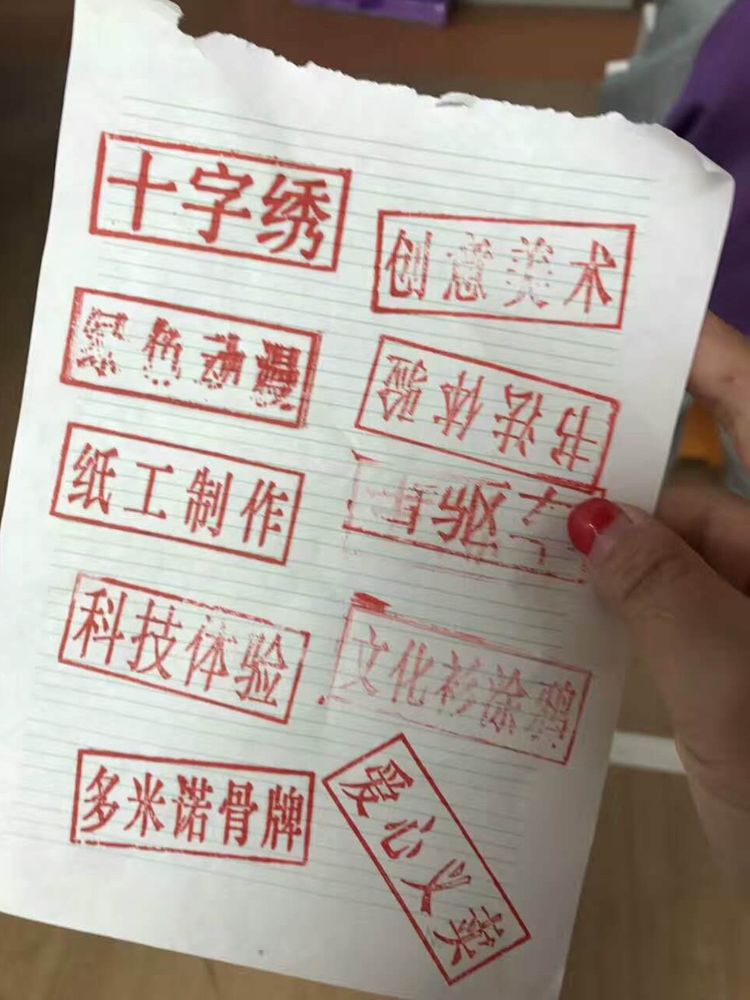 十字绣
创意美术
红色动漫
书法体验
纸工制作
科技体验
文化衫涂鸦
多米诺骨牌
爱心义卖